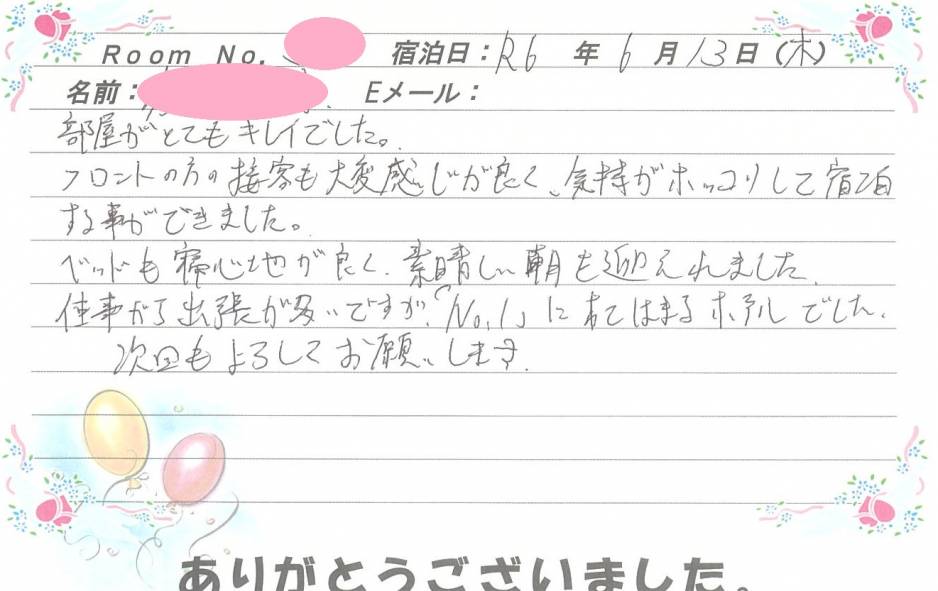 Room No. 宿泊日：R6 年 6 月 13 日 (木)
名前： Eメール：
部屋がとてもキレイでした。
フロントの方の接客も大変感じが良く、気持がホッコリして宿泊
する事ができました。
ベッドも寝心地が良く、素晴しい朝を迎えれました。
仕事がら出張が多いですが、「No.1」に当てはまるホテルでした。
次回もよろしくお願いします。
ありがとうございました。